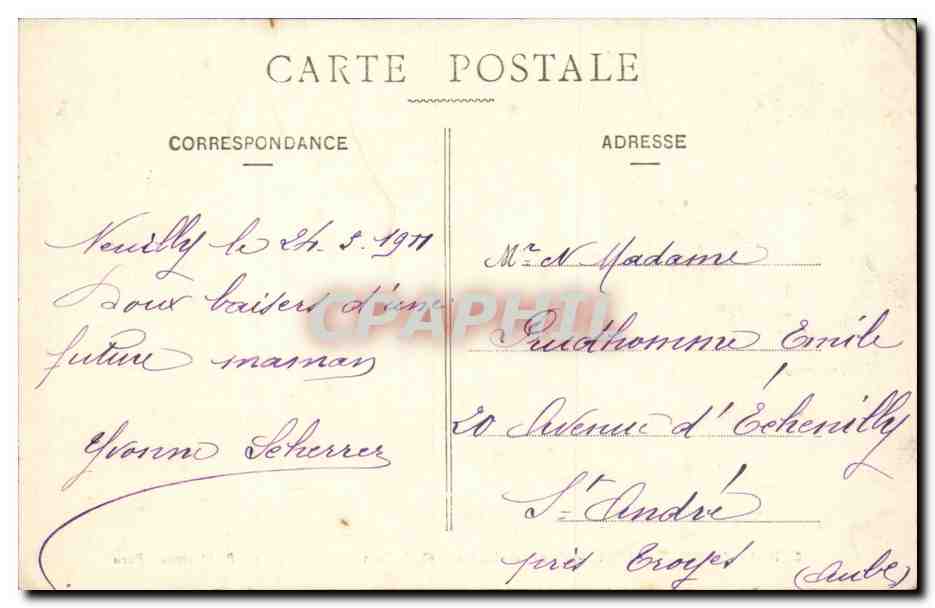 CARTE POSTALE
CORRESPONDANCE
ADRESSE
Neuilly le 24. 5. 1911
Doux baisers d'une
future maman
Yvonne Scherrer
Mr & Madame
Prudhomme Emile
20 Avenue d'Échenilly
St André
près Troyes (Aube)
CPAPHIL